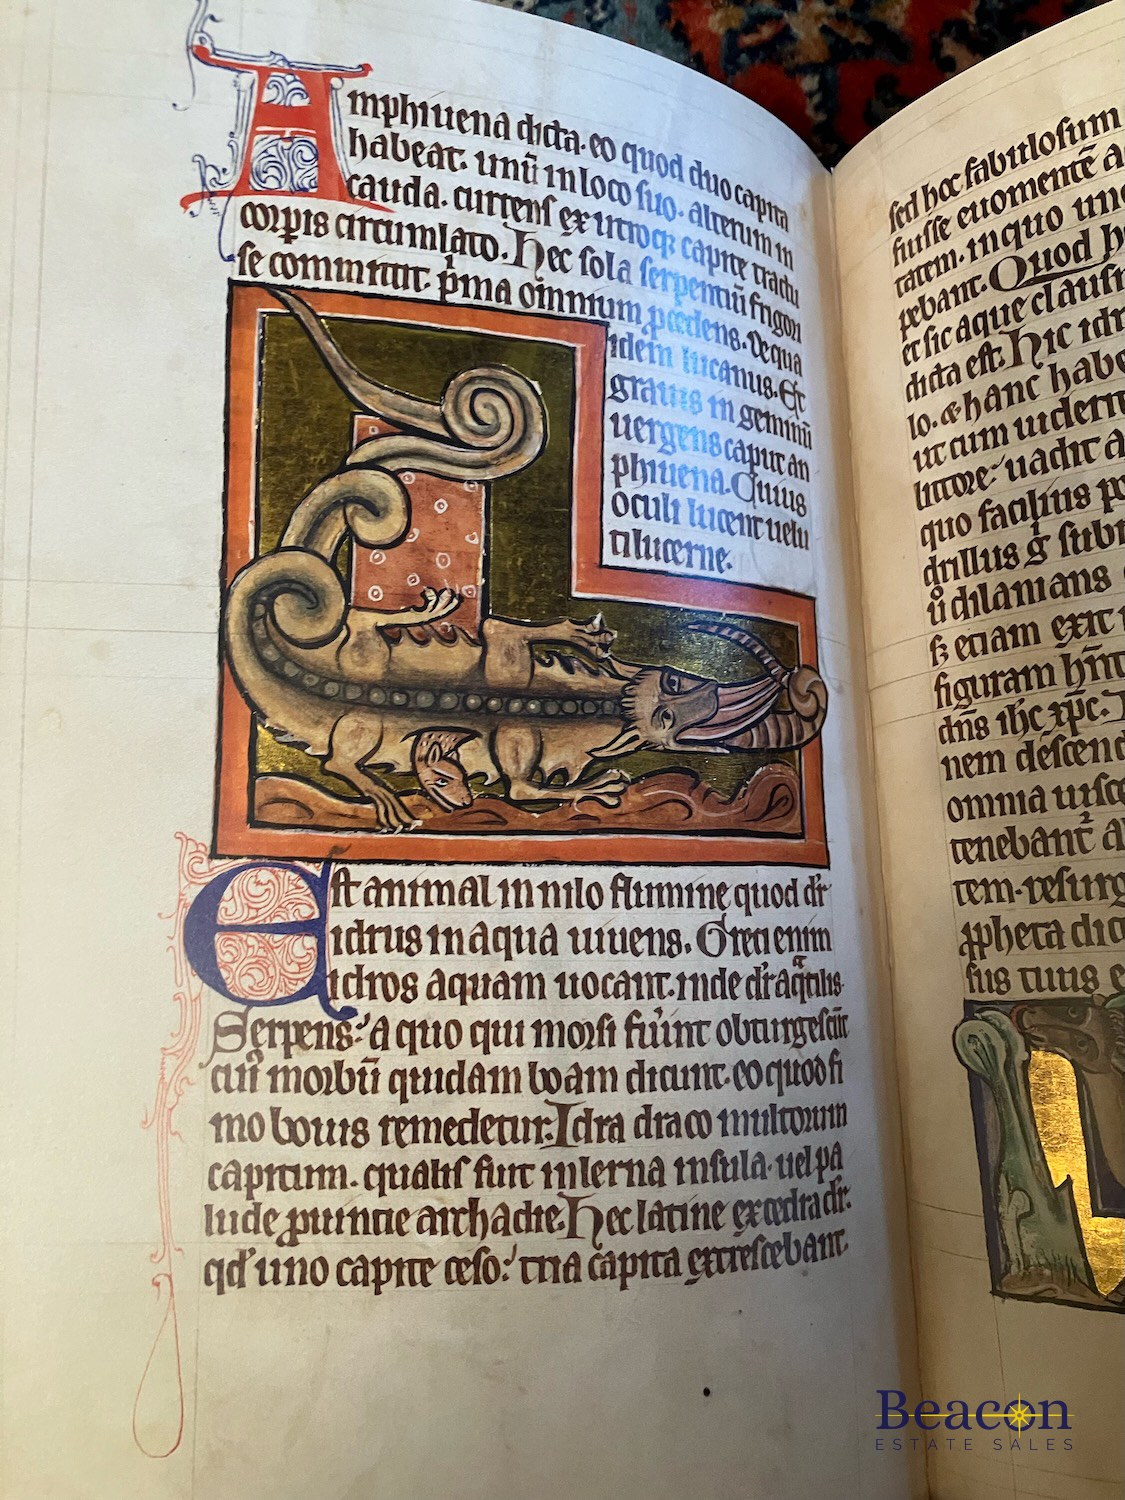 Amphiuena dicta. eo quod duo capita
habeat. unū in loco suo. alterum in
cauda. currens ex utroq; capite tractu
corpis circumlato. Hec sola serpentiū frigori
se committit. p̄ma omnium pcedens. De qua
idem lucanus. Et
grauis in geminū
uergens caput an
phiuena. Cuius
oculi lucent uelu
ti lucerne.
Est animal in nilo flumine quod dr̄
idrus in aqua uiuens. Greci enim
idros aquam uocant. inde dr̄ aqͣtilis
Serpens. a quo qui morsi fūint obturgescūt
cui morbū quidam boam dicunt. eo quod fi
mo bouis remedetur. Idra draco multorum
capitum. qualis fuit in lerna insula. uel pa
lude puincie archadie. Hec latine excedra dr̄.
qd uno capite ceso. tria capita excrescebant.
sed hoc fabulosum
fuisse euomente a
tatem. in quo uno
pebant. Quod h
et sic aque clausis
dicta est. Hic idr
lo. & hanc habe
ut cum uiderit
littore. uadit a
quo facilius po
drillus g̊ subi
ů dilanians
sȝ etiam exit
figuram hn̄t
dn̄s ih̄c xp̄c.
nem descend
omnia uisce
tenebant᷑ a
tem. resurg
ppheta dic
sus tuus e
Beacon
ESTATE SALES